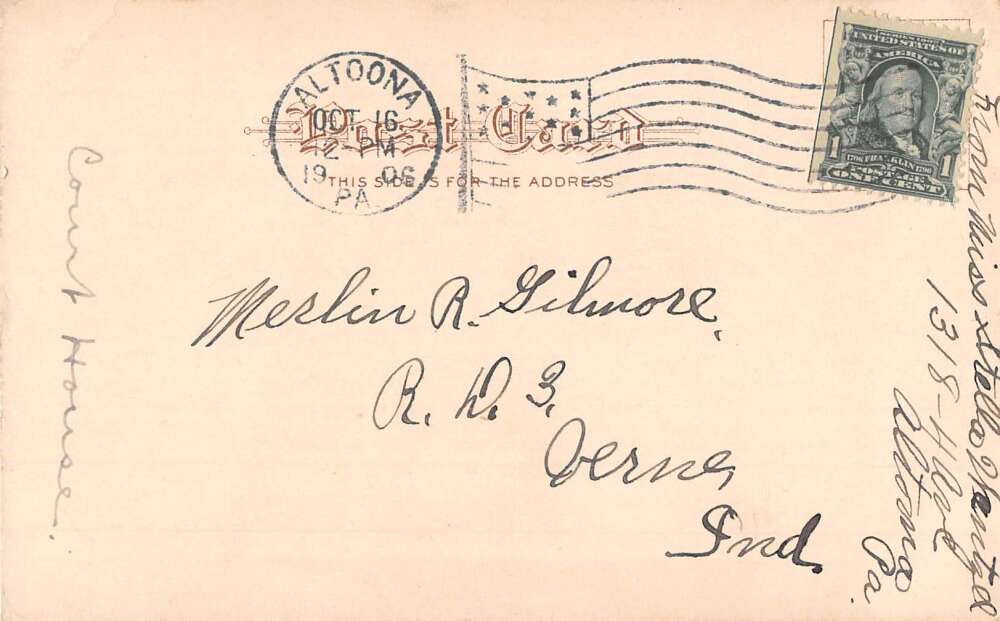 ALTOONA
OCT 16
12 PM
19 06
PA
Post Card
THIS SIDE IS FOR THE ADDRESS
SERIES 1902
UNITED STATES OF
AMERICA
1706 FRANKLIN 1790
1 POSTAGE 1
ONE CENT
Merlin R. Gilmore,
R. D. 3.
Verne,
Ind.
From Miss Stella
1318-4 Ave
Altoona
Pa.
Court House.